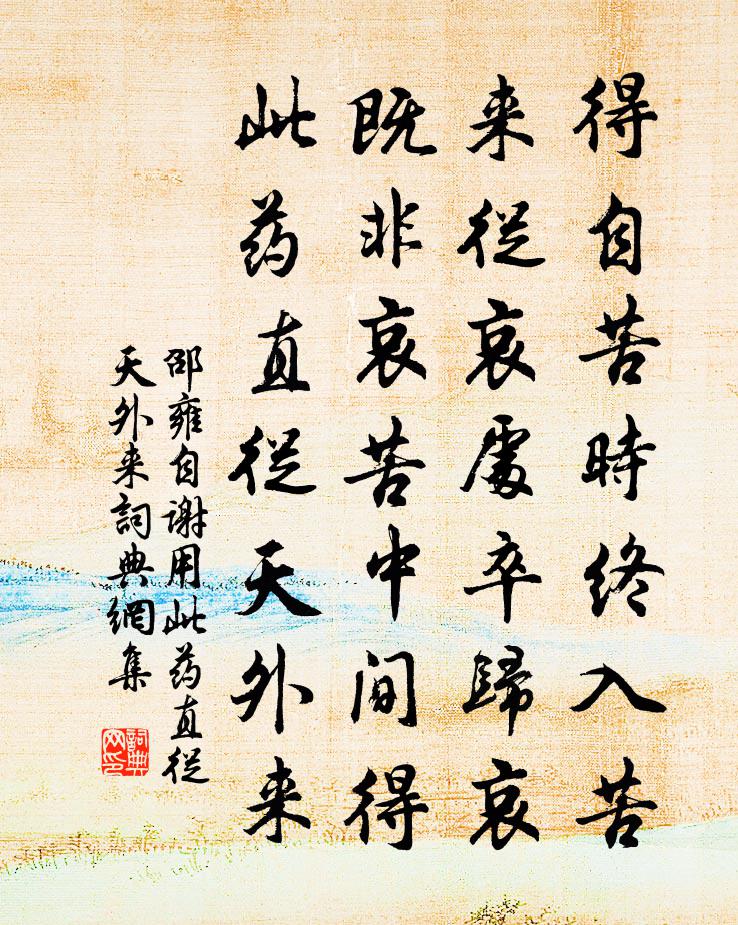 得自苦時終入苦
来從哀處卒歸哀
既非哀苦中間得
此药直從天外来
邵雍自谢用此药直從
天外来詞典網集
詞典
网印